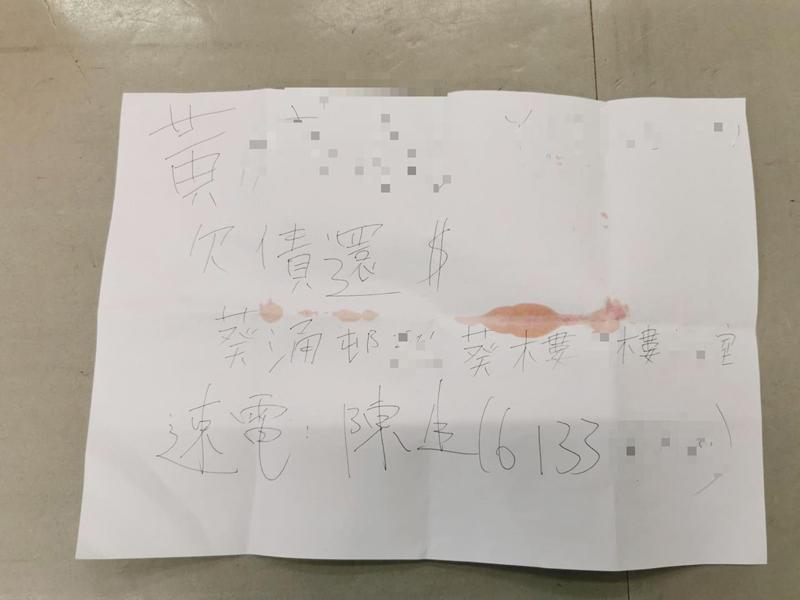 黃
欠債還 $
葵涌邨 葵樓 樓 室
速電: 陳生(6133 )